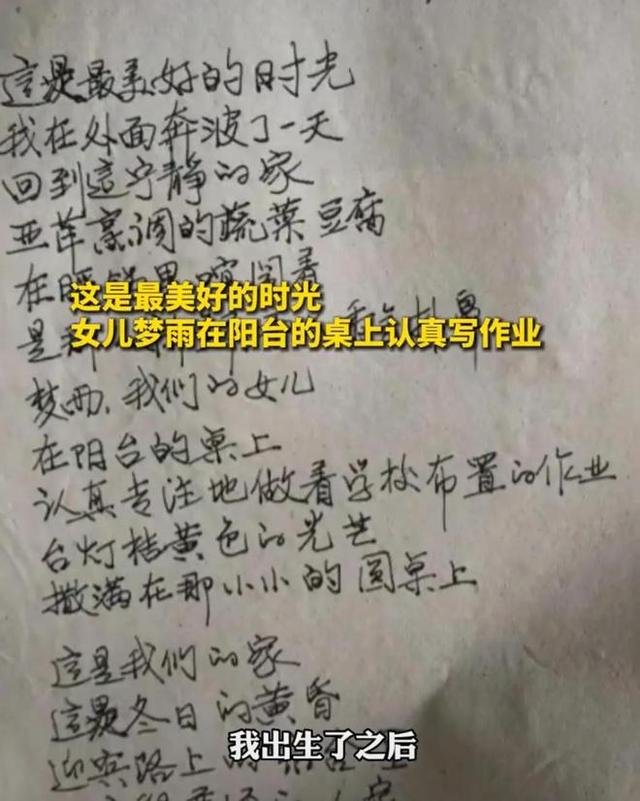 這是最美好的时光
我在外面奔波了一天
回到這宁静的家
亚萍烹调的蔬菜豆腐
在
这是最美好的时光
是
女儿梦雨在阳台的桌上认真写作业
梦雨、我们的女儿
在阳台的桌上
认真专注地做着学校布置的作业
台灯桔黄色的光芒
撒满在那小小的圆桌上
這是我们的家
這是冬日的黄昏
迎宾路上的
我出生了之后